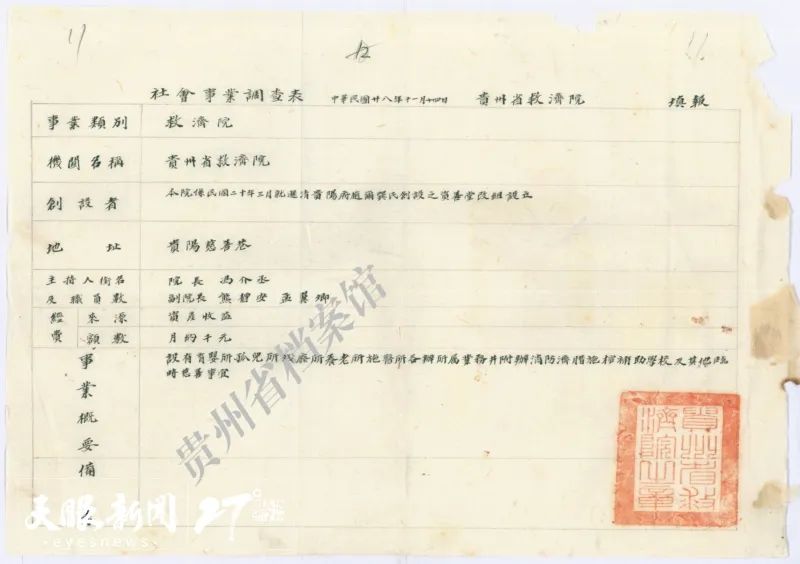 社會事業調查表 中華民國廿八年十一月十四日 貴州省救濟院 填報
事業類別 救濟院
機關名稱 貴州省救濟院
創設者 本院係民國二十年三月就遜清貴陽府趙爾巽氏創設之資善堂改組設立
地址 貴陽慈善巷
主持人銜名 院長 馮介丞
及職員數 副院長 熊靜安 孟
經費 來源 資產收益
額數 月約千元
事業概要 設有育嬰所孤兒所殘廢所養老所施醫所各辦所屬業務并附辦消防濟腊施棺補助學校及其他臨
時慈善事宜
備
貴州省救
濟院之章
贵州省档案馆
天眼新闻 27
eyesnews